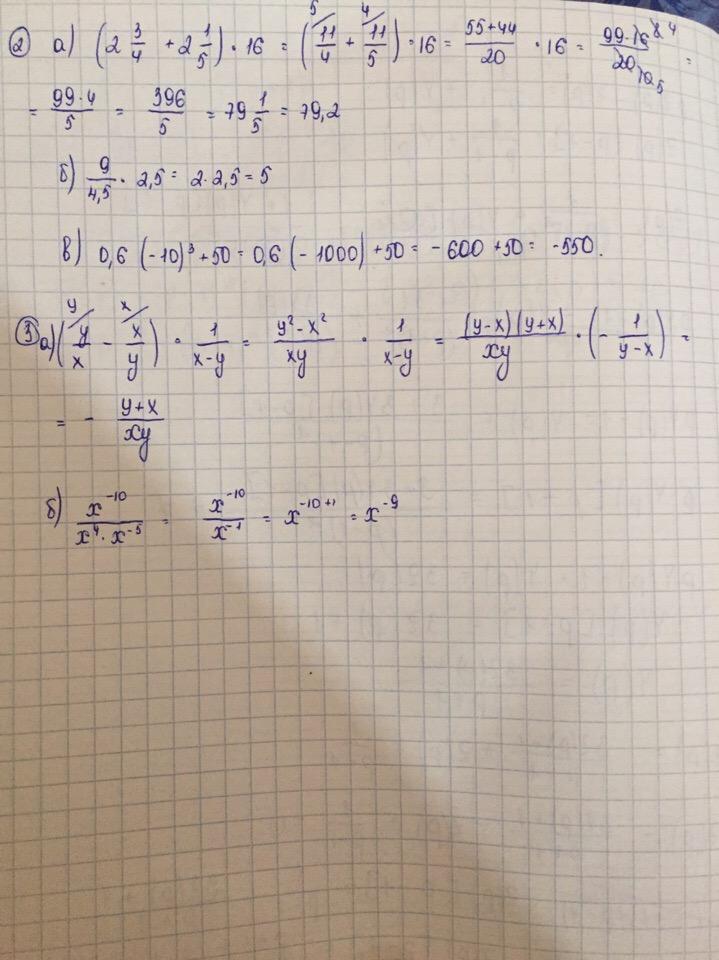 ② а) (2 3/4 + 2 1/5) · 16 = (11/4 + 11/5) · 16 = (55+44)/20 · 16 = 99·16/20 =
= 99·4/5 = 396/5 = 79 1/5 = 79,2
б) 9/4,5 · 2,5 = 2·2,5 = 5
в) 0,6 (-10)³ + 50 = 0,6 (-1000) + 50 = -600 + 50 = -550.
③ а) (y/x - x/y) · 1/(x-y) = (y²-x²)/xy · 1/(x-y) = (y-x)(y+x)/xy · (- 1/(y-x)) =
= - (y+x)/xy
б) x⁻¹⁰/(x⁴·x⁻⁵) = x⁻¹⁰/x⁻¹ = x⁻¹⁰⁺¹ = x⁻⁹